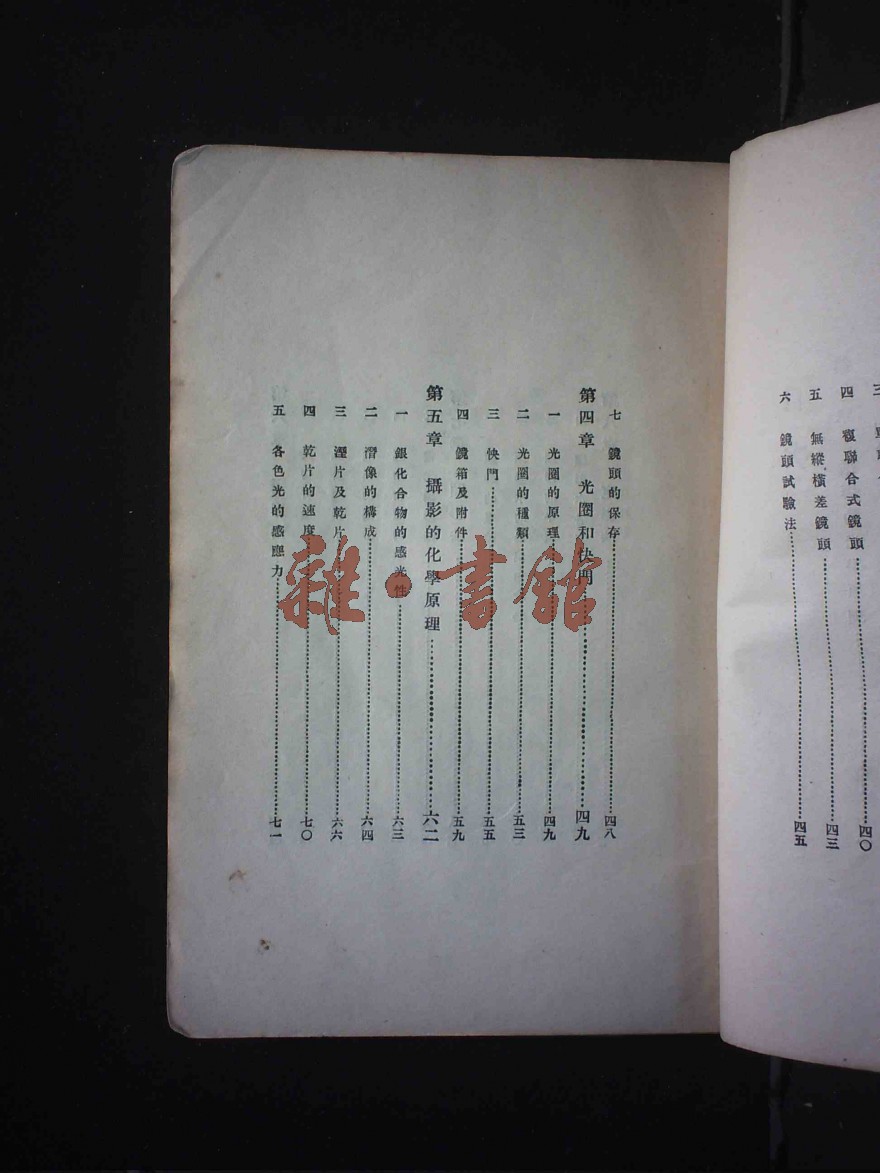 四　複聯合式鏡頭……四〇
五　無縱橫差鏡頭……四三
六　鏡頭試驗法……四五
七　鏡頭的保存……四八
第四章　光圈和快門……四九
一　光圈的原理……四九
二　光圈的種類……五三
三　快門……五五
四　鏡箱及附件……五九
第五章　攝影的化學原理……六二
一　銀化合物的感光性……六三
二　潛像的構成……六四
三　溼片及乾片……六六
四　乾片的速度……七〇
五　各色光的感應力……七一
雜·書館